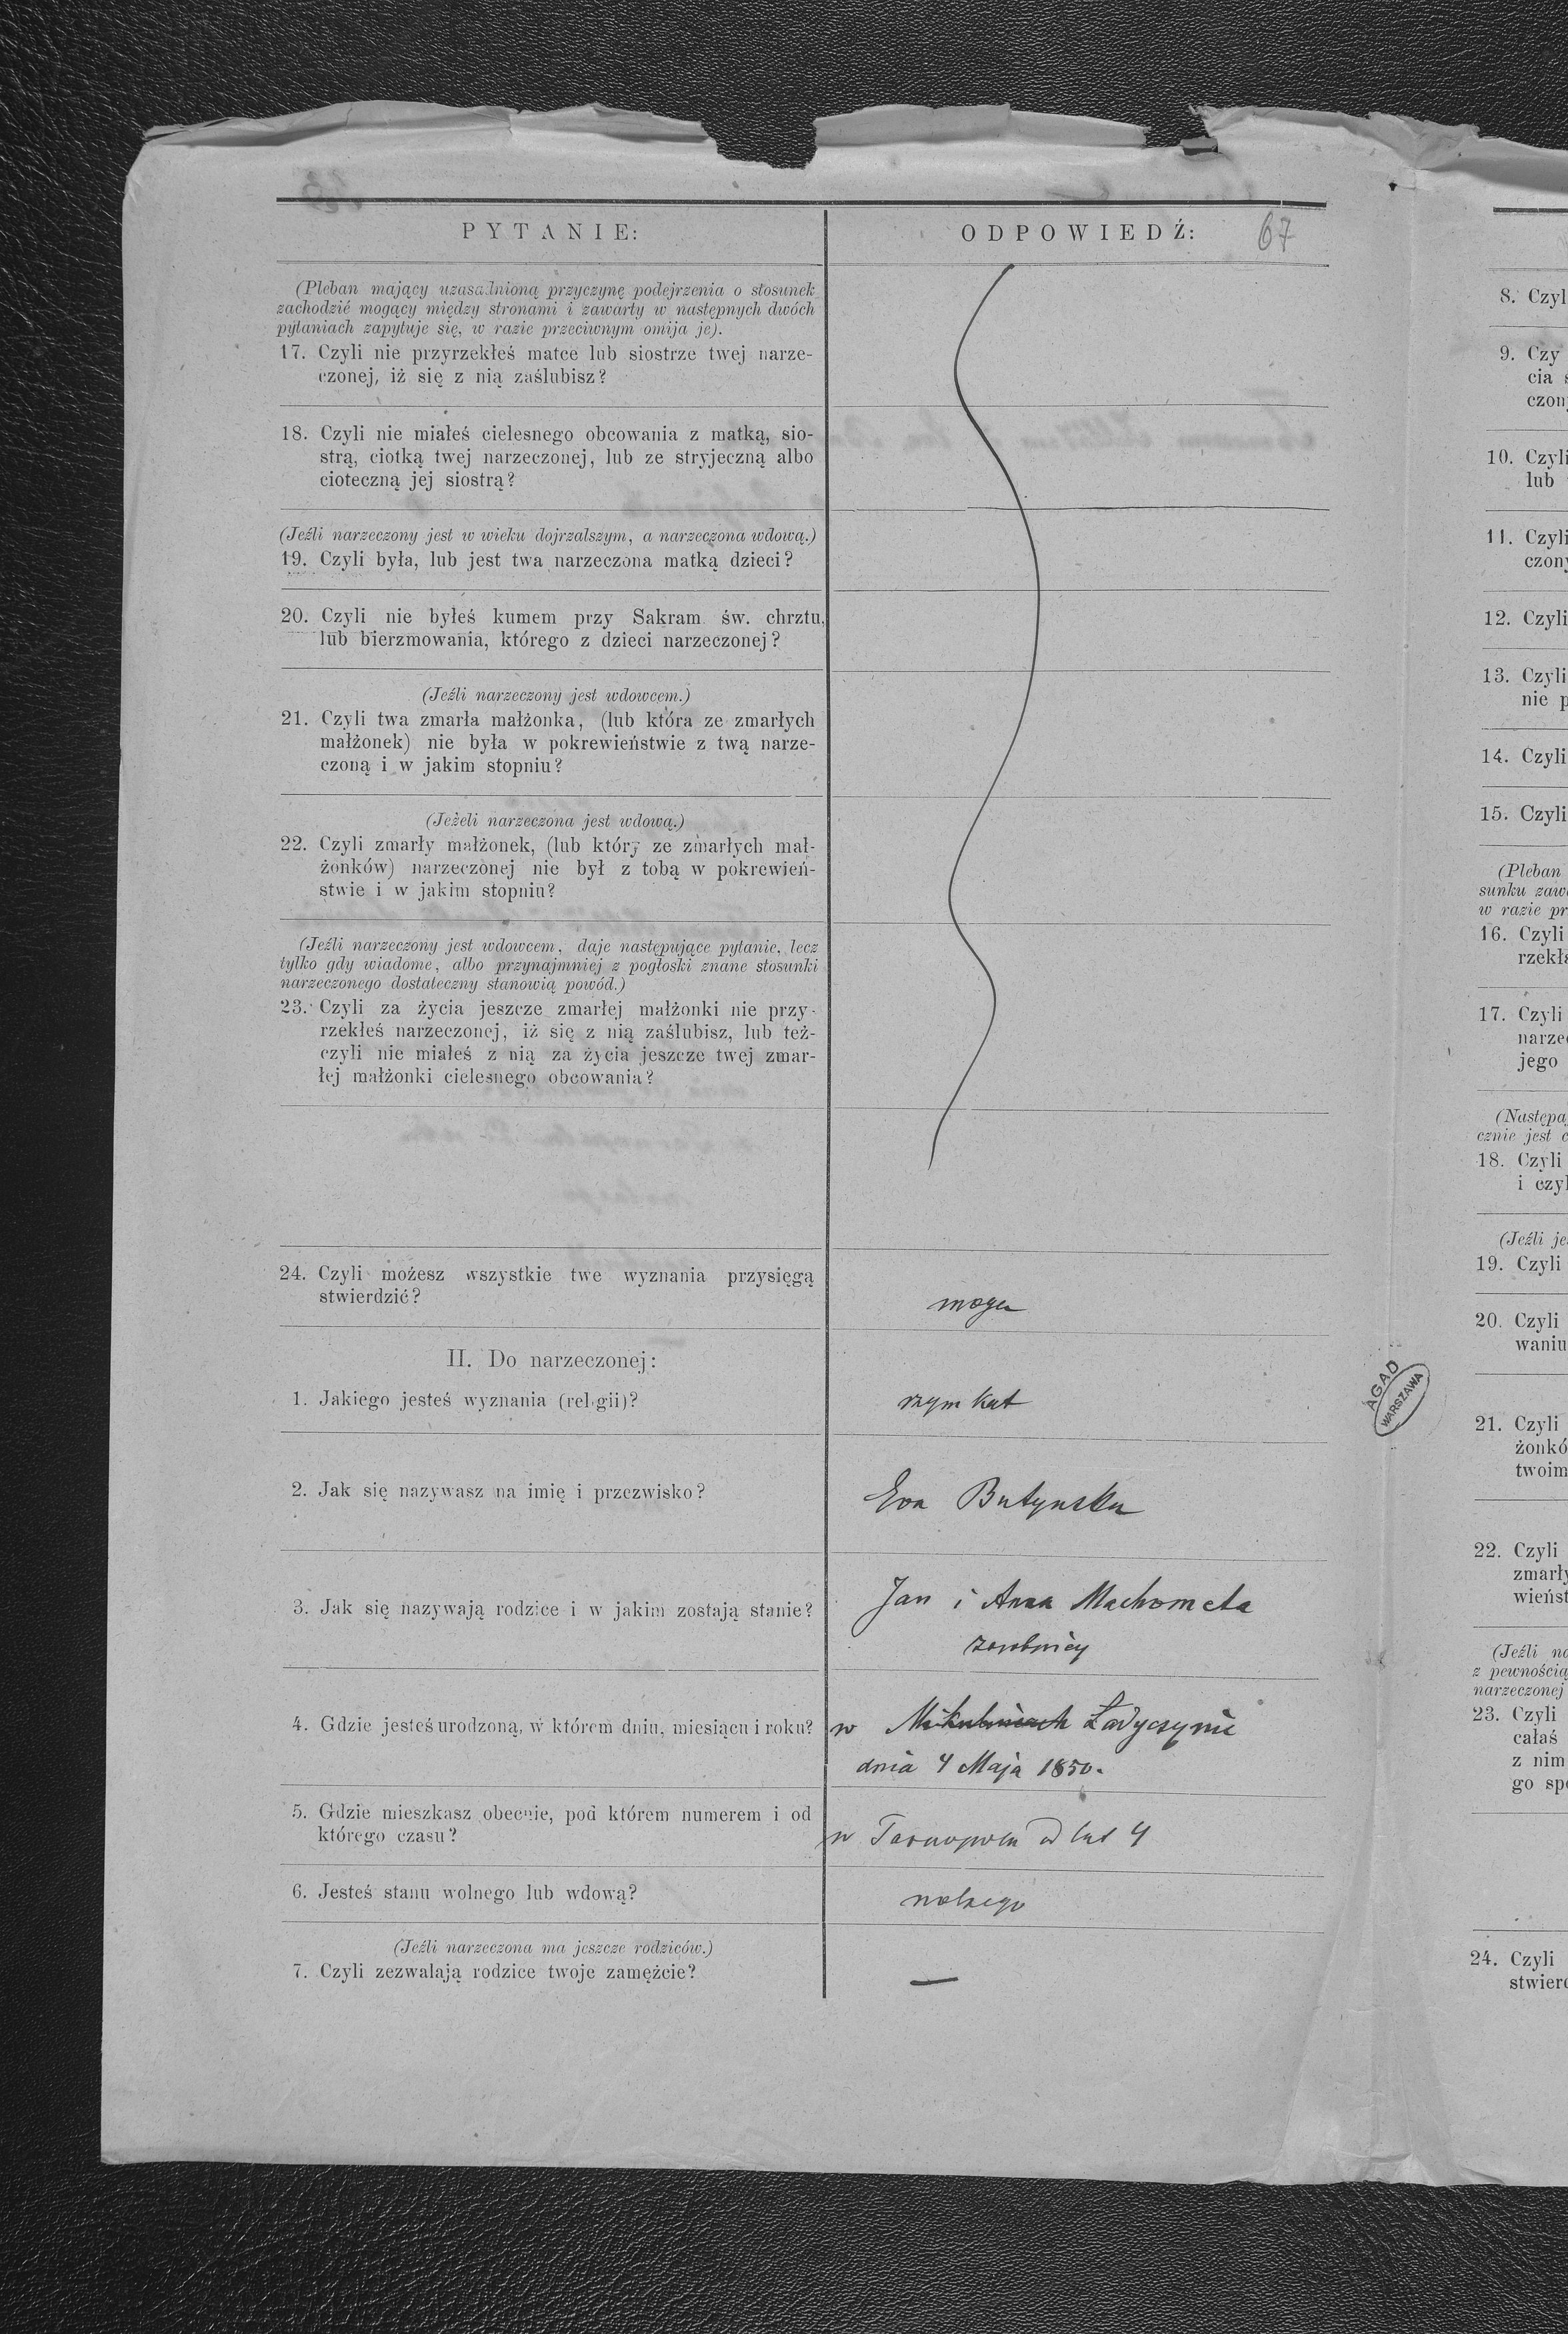 PYTANIE:
ODPOWIEDŹ: 67
(Pleban mający uzasadnioną przyczynę podejrzenia o stosunek
zachodzić mogący między stronami i zawarty w następnych dwóch
pytaniach zapytuje się, w razie przeciwnym omija je).
17. Czyli nie przyrzekłeś matce lub siostrze twej narze-
czonej, iż się z nią zaślubisz?
18. Czyli nie miałeś cielesnego obcowania z matką, sio-
strą, ciotką twej narzeczonej, lub ze stryjeczną albo
cioteczną jej siostrą?
(Jeźli narzeczony jest w wieku dojrzalszym, a narzeczona wdową.)
19. Czyli była, lub jest twa narzeczona matką dzieci?
20. Czyli nie byłeś kumem przy Sakram. św. chrztu,
lub bierzmowania, którego z dzieci narzeczonej?
(Jeźli narzeczony jest wdowcem.)
21. Czyli twa zmarła małżonka, (lub która ze zmarłych
małżonek) nie była w pokrewieństwie z twą narze-
czoną i w jakim stopniu?
(Jeżeli narzeczona jest wdową.)
22. Czyli zmarły małżonek, (lub który ze zmarłych mał-
żonków) narzeczonej nie był z tobą w pokrewień-
stwie i w jakim stopniu?
(Jeźli narzeczony jest wdowcem, daje następujące pytanie, lecz
tylko gdy wiadome, albo przynajmniej z pogłoski znane stosunki
narzeczonego dostateczny stanowią powód.)
23. Czyli za życia jeszcze zmarłej małżonki nie przy-
rzekłeś narzeczonej, iż się z nią zaślubisz, lub też-
czyli nie miałeś z nią za życia jeszcze twej zmar-
łej małżonki cielesnego obcowania?
24. Czyli możesz wszystkie twe wyznania przysięgą
stwierdzić?
mogę
II. Do narzeczonej:
1. Jakiego jesteś wyznania (religii)?
rzym kat
2. Jak się nazywasz na imię i przezwisko?
Eva Butynska
3. Jak się nazywają rodzice i w jakim zostają stanie?
Jan i Anna Machometa
zarobnicy
4. Gdzie jesteś urodzoną, w którem dniu, miesiącu i roku?
w Mikulińcach Ładyczynie
dnia 4 Maja 1850.
5. Gdzie mieszkasz obecnie, pod którem numerem i od
którego czasu?
w Tarnopolu od lat 4
6. Jesteś stanu wolnego lub wdową?
wolnego
(Jeźli narzeczona ma jeszcze rodziców.)
7. Czyli zezwalają rodzice twoje zamęźcie?
—
AGAD
WARSZAWA
8. Czyl
9. Czy
cia
czon
10. Czyli
lub
11. Czyli
czony
12. Czyli
13. Czyli
nie p
14. Czyli
15. Czyli
(Pleban
sunku zaw
w razie pr
16. Czyli
rzekła
17. Czyli
narze
jego
(Następa
cznie jest c
18. Czyli
i czyl
(Jeźli je
19. Czyli
20. Czyli
waniu
21. Czyli
żonkó
twoim
22. Czyli
zmarły
wieńst
(Jeźli na
z pewnością
narzeczonej
23. Czyli
całaś
z nim
go spo
24. Czyli
stwier